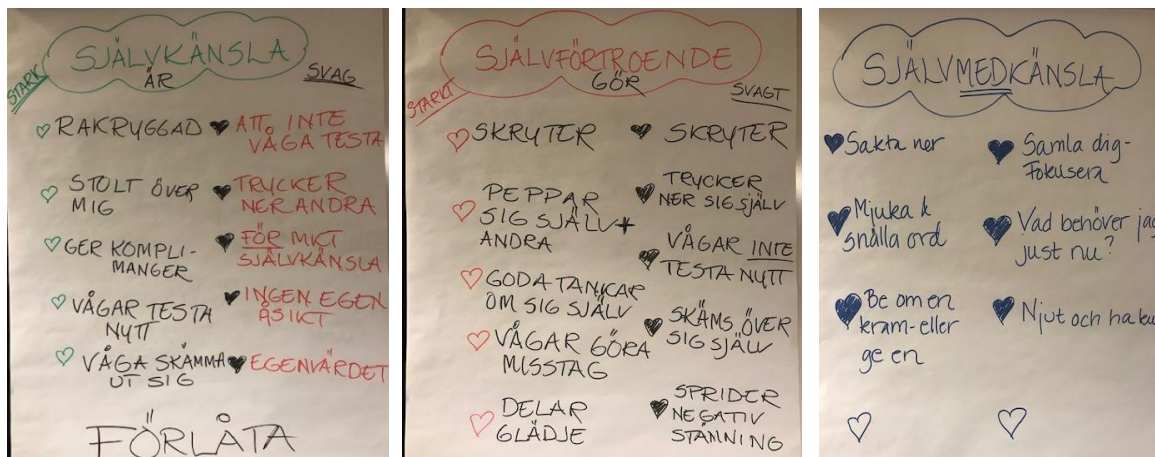 SJÄLVKÄNSLA
ÄR
STARK
SVAG
RAKRYGGAD
STOLT ÖVER
MIG
GER KOMPLI-
MANGER
VÅGAR TESTA
NYTT
VÅGA SKÄMMA
UT SIG
ATT INTE
VÅGA TESTA
TRYCKER
NER ANDRA
FÖR MKT
SJÄLVKÄNSLA
INGEN EGEN
ÅSIKT
EGENVÄRDET
FÖRLÅTA
SJÄLVFÖRTROENDE
GÖR
STARKT
SVAGT
SKRYTER
PEPPAR
SIG SJÄLV +
ANDRA
GODA TANKAR
OM SIG SJÄLV
VÅGAR GÖRA
MISSTAG
DELAR
GLÄDJE
SKRYTER
TRYCKER
NER SIG SJÄLV
VÅGAR INTE
TESTA NYTT
SKÄMS ÖVER
SIG SJÄLV
SPRIDER
NEGATIV
STÄMNING
SJÄLVMEDKÄNSLA
Sakta ner
Mjuka &
snälla ord
Be om en
kram-eller
ge en
Samla dig-
Fokusera
Vad behöver
just nu?
Njut och ha